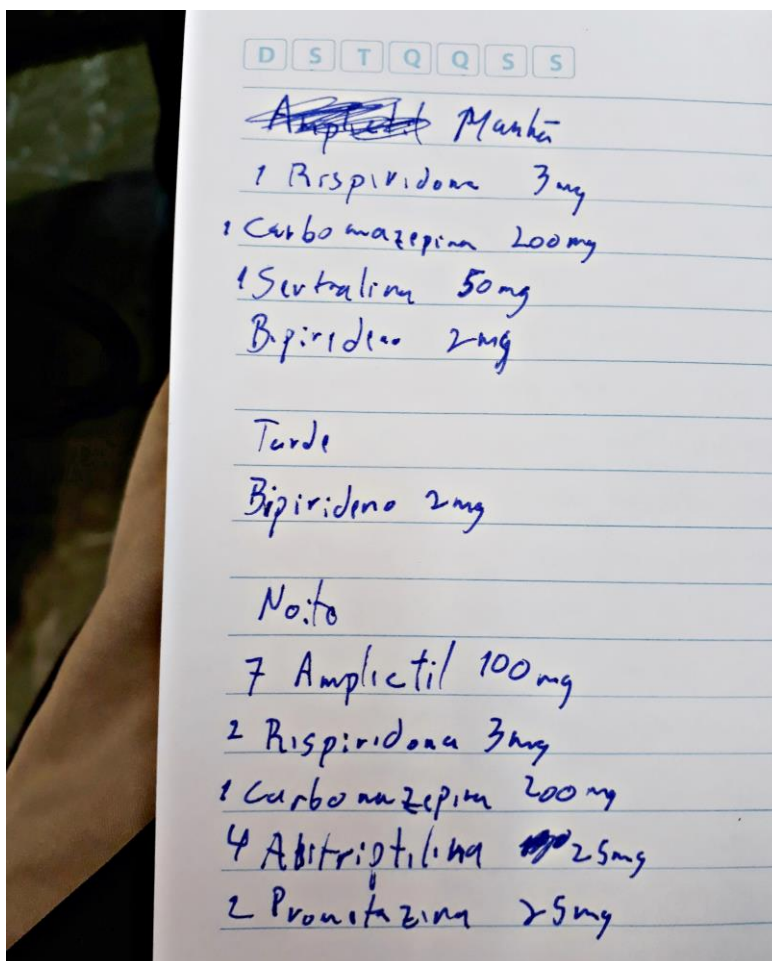 D S T Q Q S S
Amplictil Manhã
1 Rispiridona 3mg
1 Carbomazepina 200mg
1 Sertralina 50mg
Bipirideno 2mg
Tarde
Bipirideno 2mg
Noite
7 Amplictil 100mg
2 Rispiridona 3mg
1 Carbomazepina 200mg
4 Abitriptilina 25mg
2 Prometazina 25mg